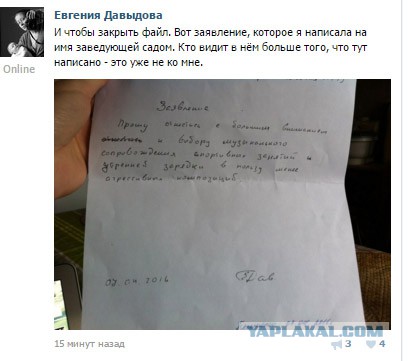 Евгения Давыдова
И чтобы закрыть файл. Вот заявление, которое я написала на
имя заведующей садом. Кто видит в нём больше того, что тут
написано - это уже не ко мне.
Online
Заявление
Прошу отнестись с большим вниманием
к выбору музыкального
сопровождения спортивных занятий и
утренней зарядки в пользу менее
агрессивных композиций.
2016
Дав
YAPLAKAL.COM
15 минут назад
3
4